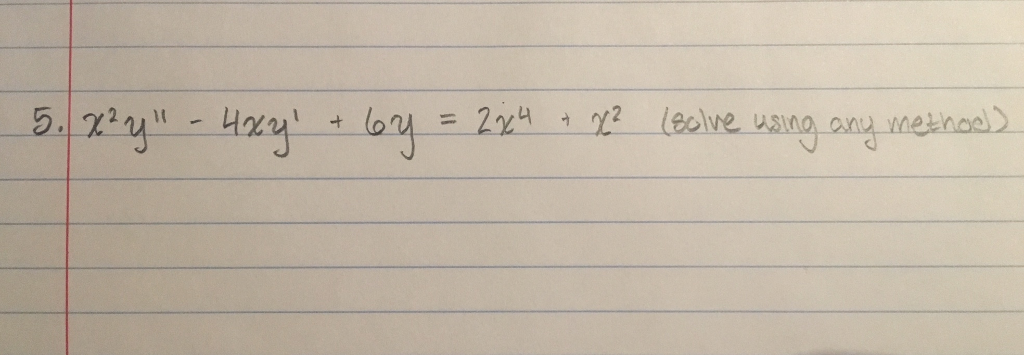 5. x²y'' - 4xy' + 6y = 2x⁴ + x² (solve using any method)